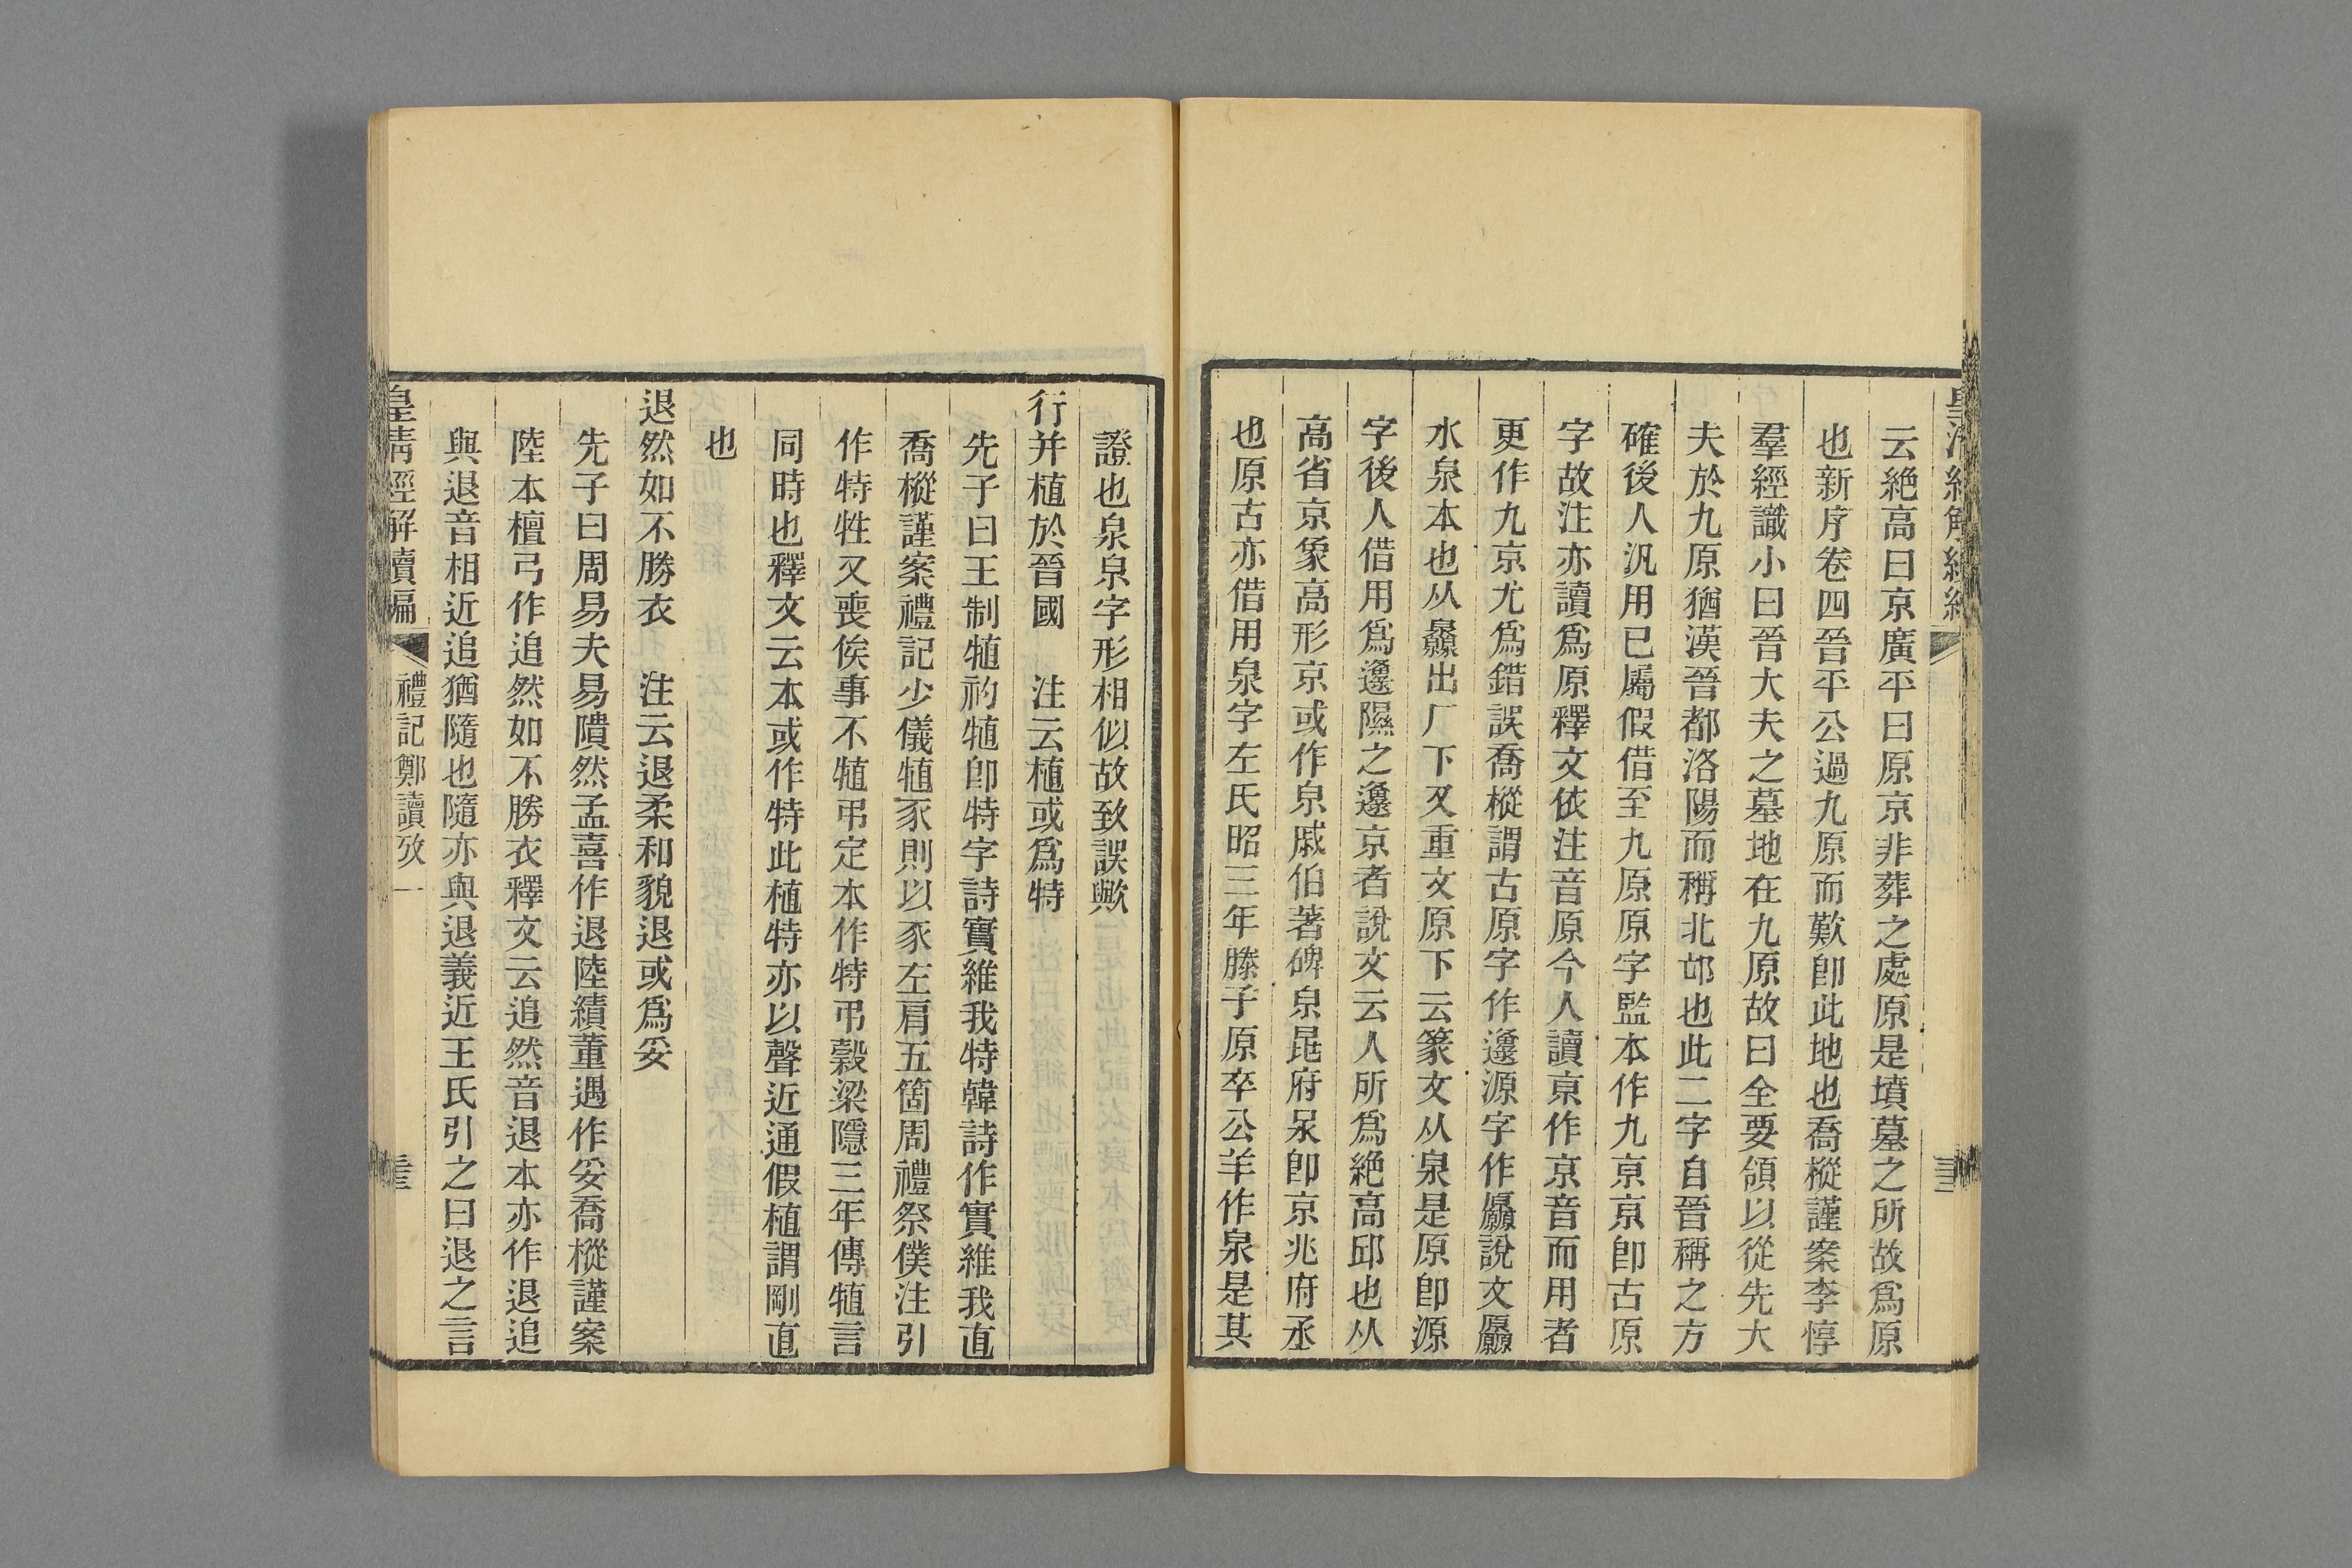 云絶高曰京廣平曰原京非葬之處原是墳墓之所故爲原
也新序卷四晉平公過九原而歎卽此地也喬樅謹案李惇
羣經識小曰晉大夫之墓地在九原故曰全要領以從先大
夫於九原猶漢晉都洛陽而稱北邙也此二字自晉稱之方
確後人汎用已屬假借至九原原字監本作九京京卽古原
字故注亦讀爲原釋文依注音原今人讀京作京音而用者
更作九京尤爲錯誤喬樅謂古原字作邍源字作厵說文厵
水泉本也从灥出厂下又重文原下云篆文从泉是原卽源
字後人借用爲邍隰之邍京者說文云人所爲絶高邱也从
高省京象高形京或作亰戚伯著碑亰昆府㒵卽京兆府丞
也原古亦借用泉字左氏昭三年滕子原卒公羊作泉是其
證也泉亰字形相似故致誤歟
行并植於晉國　注云植或爲特
先子曰王制犆礿犆卽特字詩實維我特韓詩作實維我直
喬樅謹案禮記少儀犆豕則以豕左肩五箇周禮祭僕注引
作特牲又喪俟事不犆弔定本作特弔穀梁隱三年傳犆言
同時也釋文云本或作特此植特亦以聲近通假植謂剛直
也
退然如不勝衣　注云退柔和貌退或爲妥
先子曰周易夫易隤然孟喜作退陸績董遇作妥喬樅謹案
陸本檀弓作追然如不勝衣釋文云追然音退本亦作退追
與退音相近追猶隨也隨亦與退義近王氏引之曰退之言
皇清經解續編
禮記鄭讀攷一